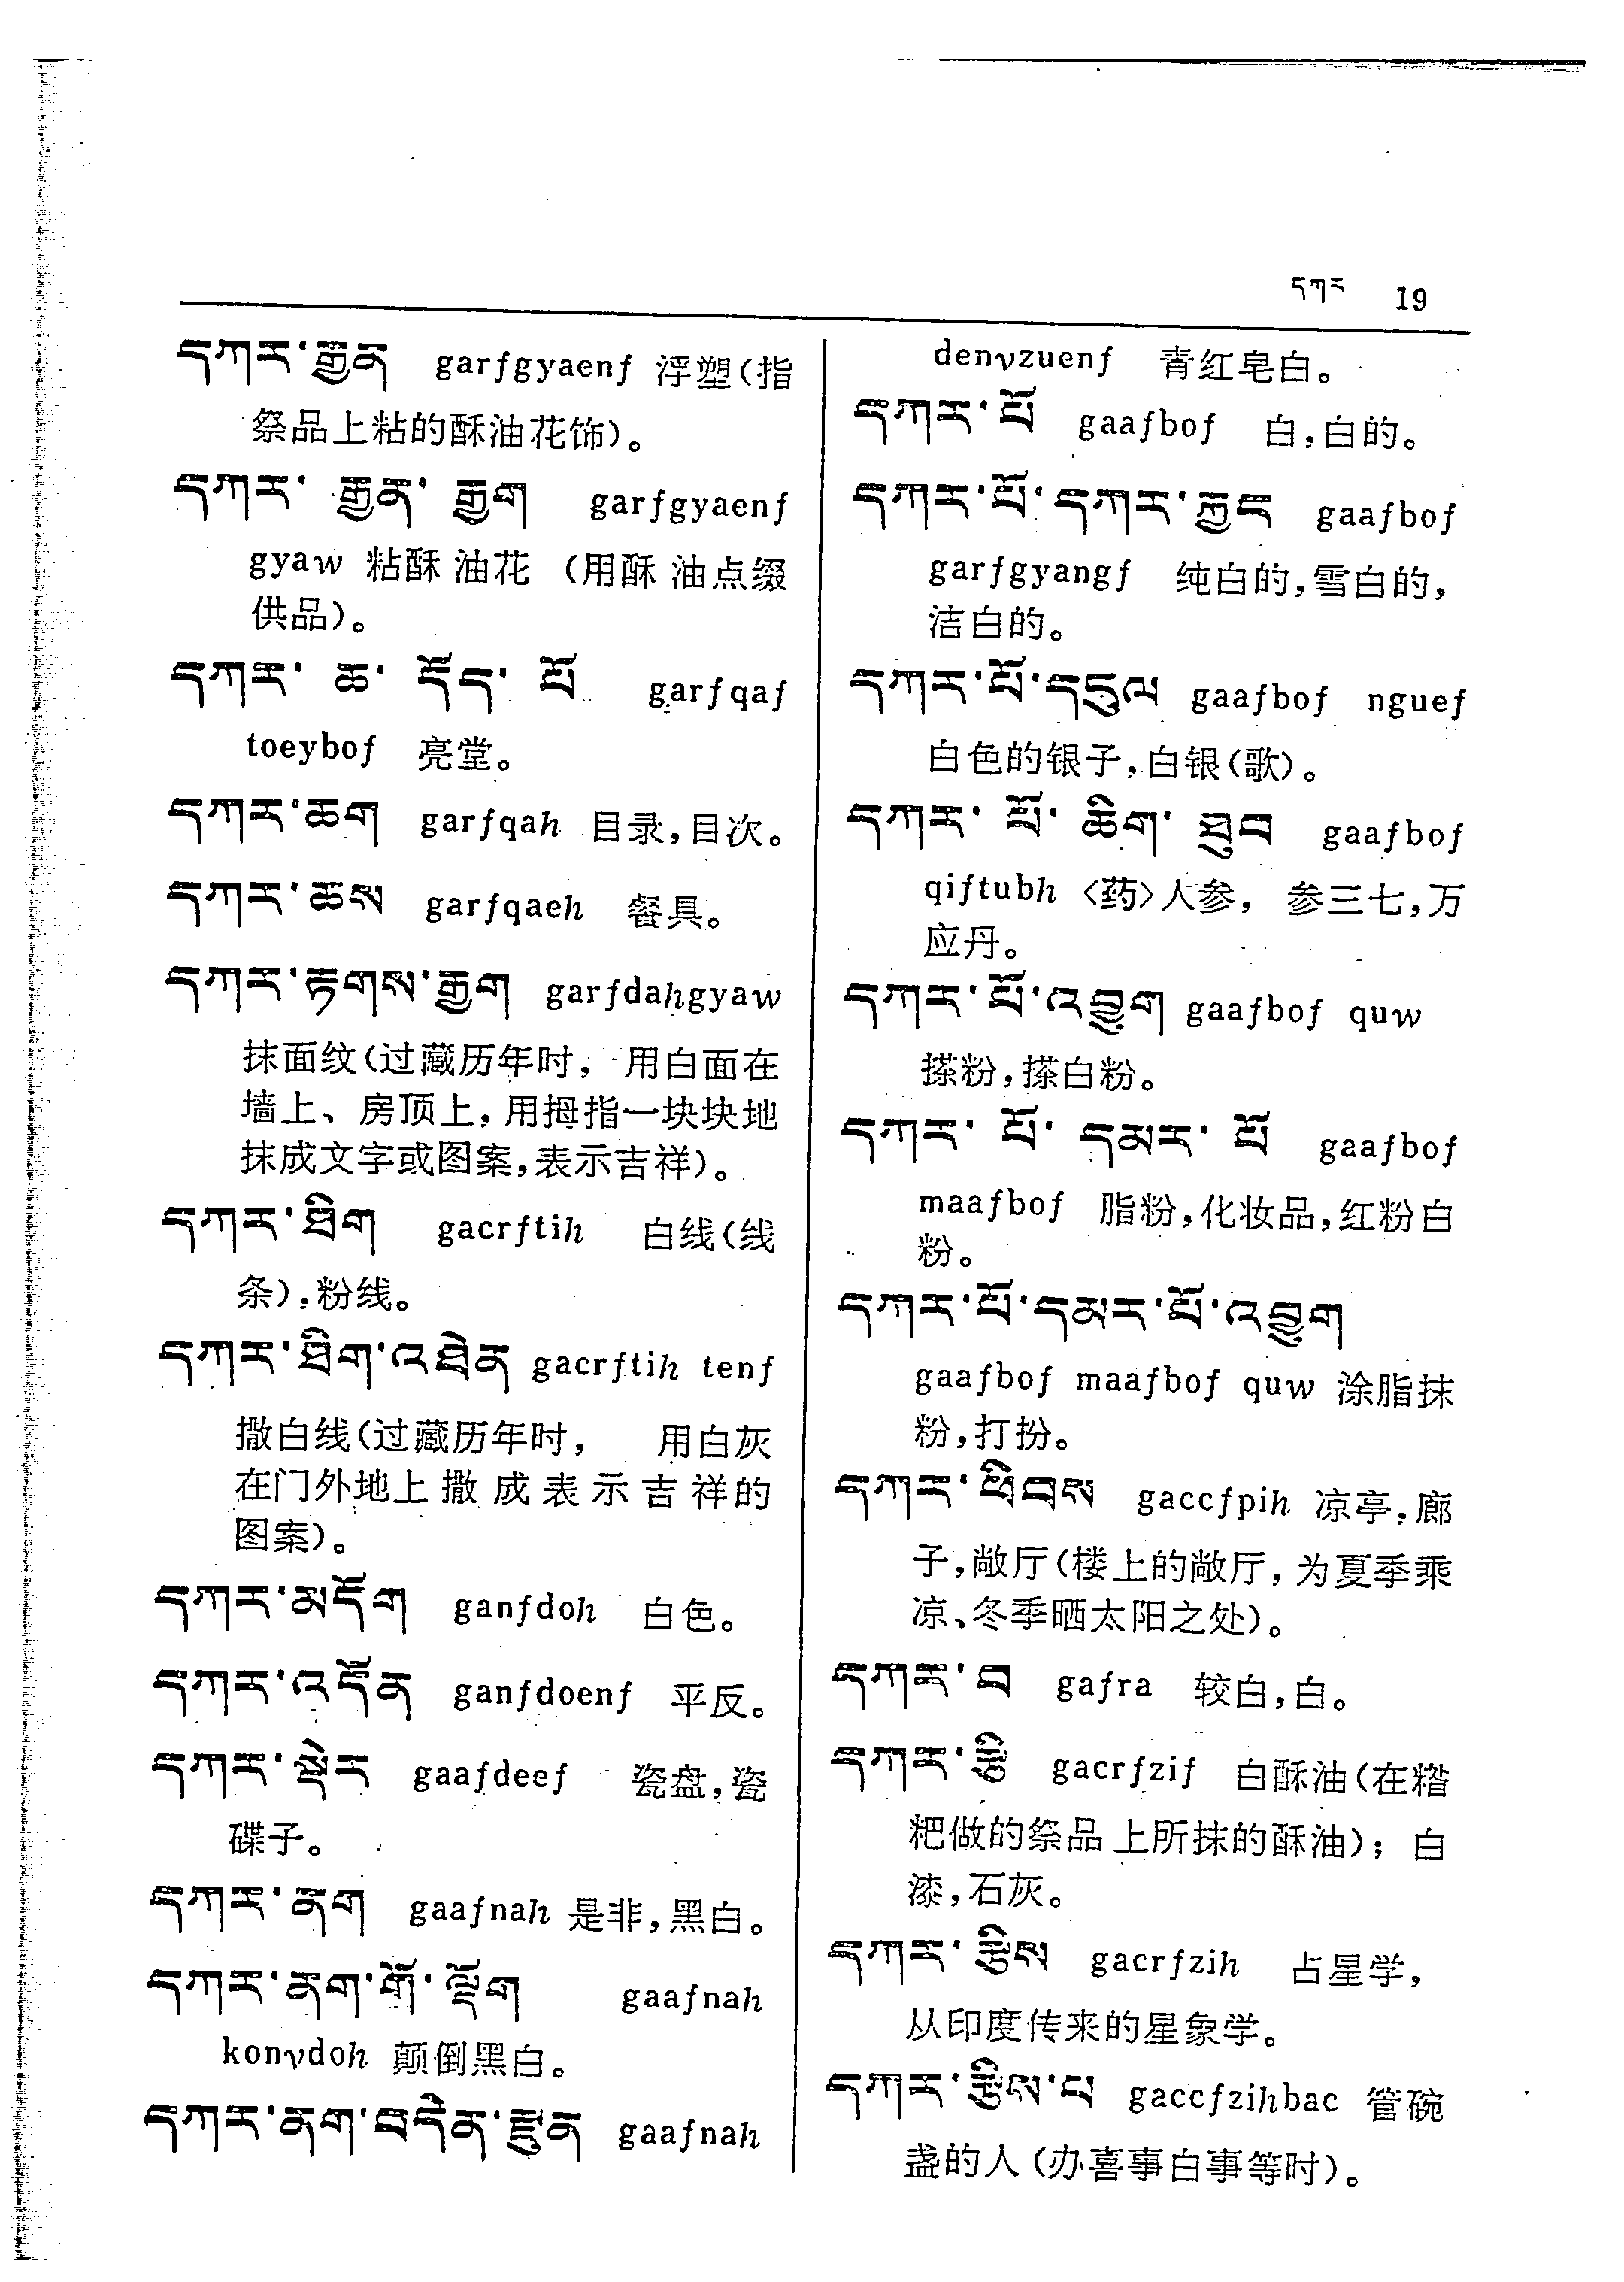 དཀར 19
དཀར་རྒྱན garfgyaenf 浮塑(指
祭品上粘的酥油花饰)。
དཀར་ རྒྱན་ རྒྱག garfgyaenf
gyaw 粘酥油花 (用酥油点缀
供品)。
དཀར་ ཆ་ དོད་ པོ garfqaf
toeybof 亮堂。
དཀར་ཆག garfqah 目录,目次。
དཀར་ཆས garfqaeh 餐具。
དཀར་རྟགས་རྒྱག garfdahgyaw
抹面纹(过藏历年时, 用白面在
墙上、房顶上,用拇指一块块地
抹成文字或图案,表示吉祥)。
དཀར་ཐིག gacrftih 白线(线
条),粉线。
དཀར་ཐིག་འཐེན gacrftih tenf
撒白线(过藏历年时, 用白灰
在门外地上撒成表示吉祥的
图案)。
དཀར་མདོག ganfdoh 白色。
དཀར་འདོན ganfdoenf 平反。
དཀར་སྡེར gaafdeef 瓷盘,瓷
碟子。
དཀར་ནག gaafnah 是非,黑白。
དཀར་ནག་གོ་ལྡོག gaafnah
konvdoh 颠倒黑白。
དཀར་ནག་བདེན་རྫུན gaafnah
denvzuenf 青红皂白。
དཀར་པོ gaafbof 白,白的。
དཀར་པོ་དཀར་རྐྱང gaafbof
garfgyangf 纯白的,雪白的,
洁白的。
དཀར་པོ་དངུལ gaafbof nguef
白色的银子,白银(歌)。
དཀར་ པོ་ ཆིག་ ཐུབ gaafbof
qiftubh 〈药〉人参, 参三七,万
应丹。
དཀར་པོ་འབྱུག gaafbof quw
搽粉,搽白粉。
དཀར་ པོ་ དམར་ པོ gaafbof
maafbof 脂粉,化妆品,红粉白
粉。
དཀར་པོ་དམར་པོ་འབྱུག
gaafbof maafbof quw 涂脂抹
粉,打扮。
དཀར་ཕིབས gaccfpih 凉亭,廊
子,敞厅(楼上的敞厅,为夏季乘
凉、冬季晒太阳之处)。
དཀར་བ gafra 较白,白。
དཀར་རྩི gacrfzif 白酥油(在糌
粑做的祭品上所抹的酥油); 白
漆,石灰。
དཀར་རྩིས gacrfzih 占星学,
从印度传来的星象学。
དཀར་རྩིས་པ gaccfzihbac 管碗
盏的人(办喜事白事等时)。